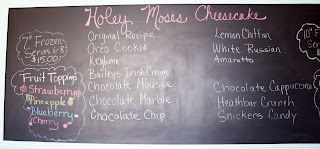 Holey Moses Cheesecake
7" Frozen
Serves 6-8
$15.00
Fruit Toppings
Strawberry
Pineapple
Blueberry
Cherry
Original Recipe
Oreo Cookie
Key Lime
Baileys Irish Cream
Chocolate Mousse
Chocolate Marble
Chocolate Chip
Lemon Chiffon
White Russian
Amaretto
Chocolate Cappuccino
Heathbar Crunch
Snickers Candy
10"